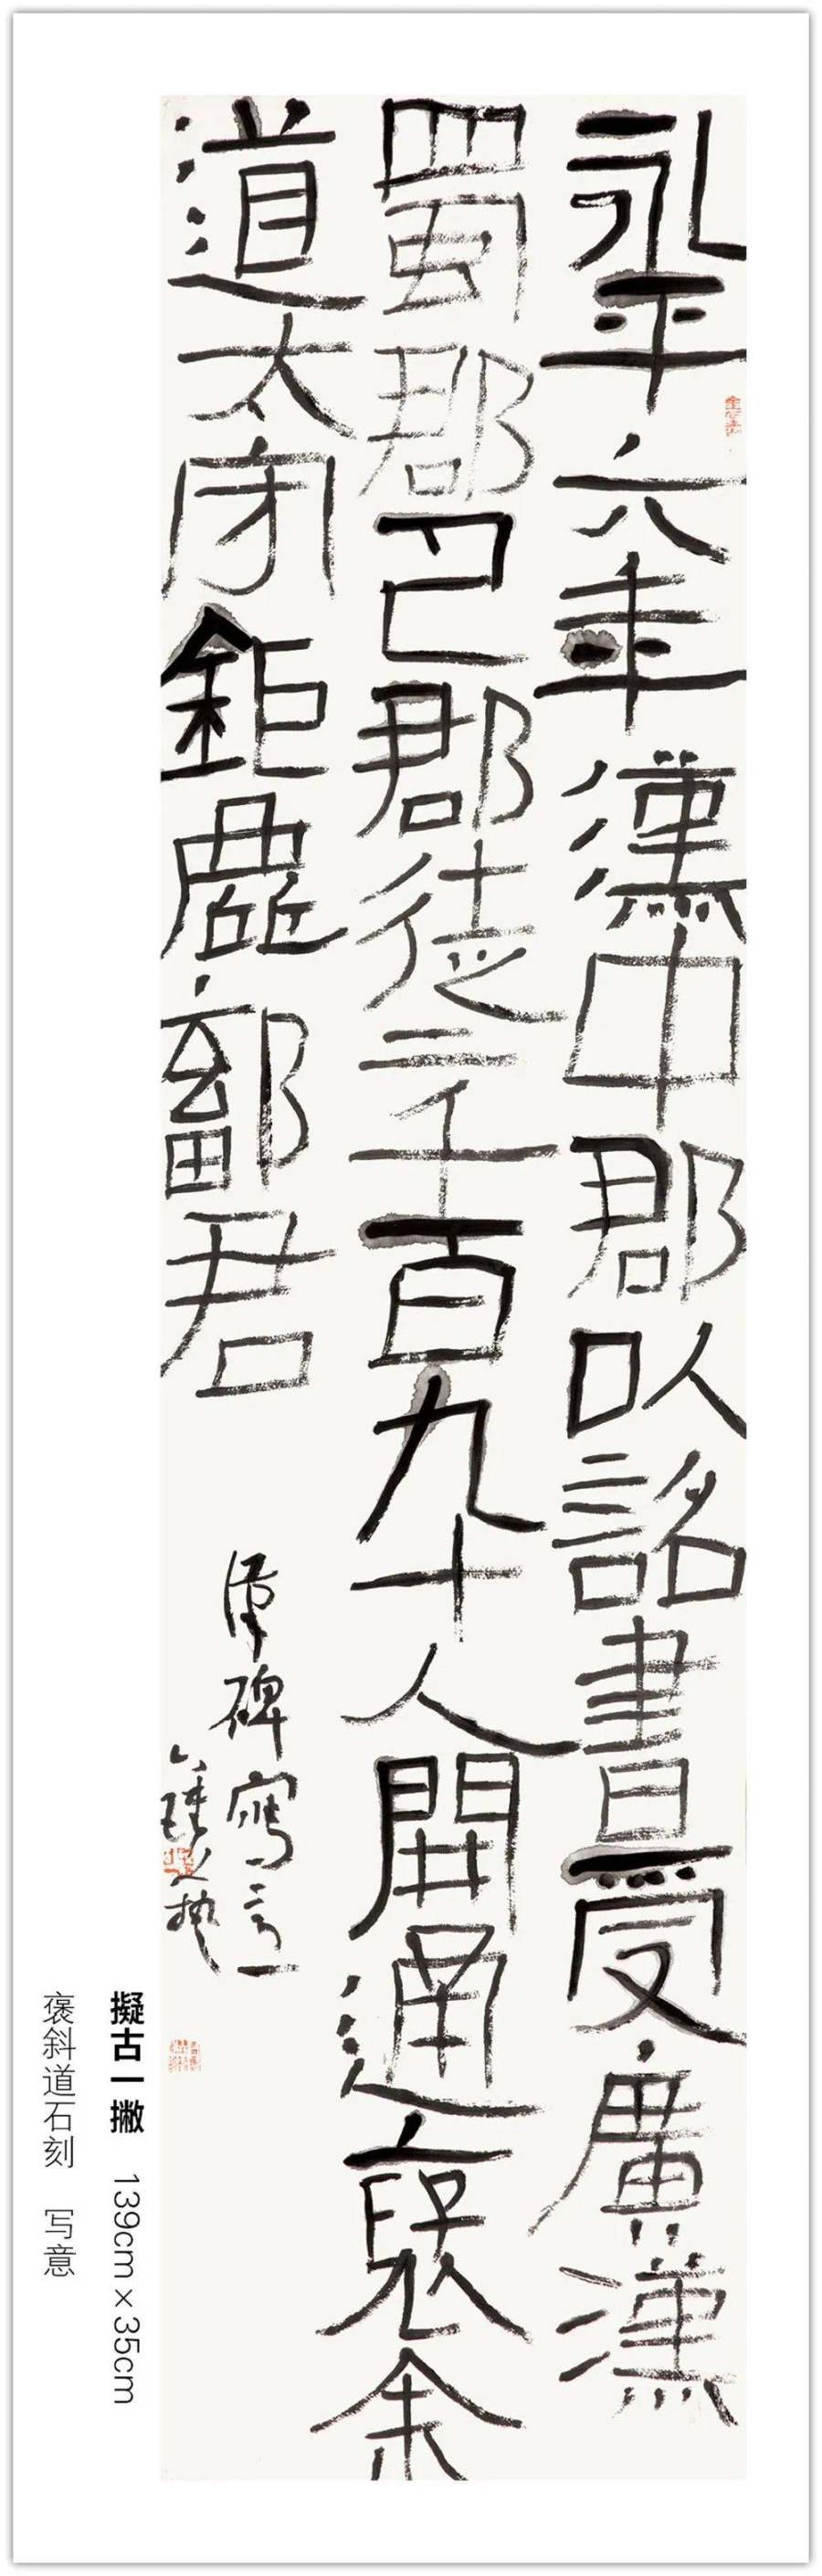 永平六年漢中郡以詔書受廣漢
蜀郡巴郡徒二千百九十人開通襃余
道太守鉅鹿鄐君
漢碑寫意
擬古一撇 139cm×35cm
褒斜道石刻 写意